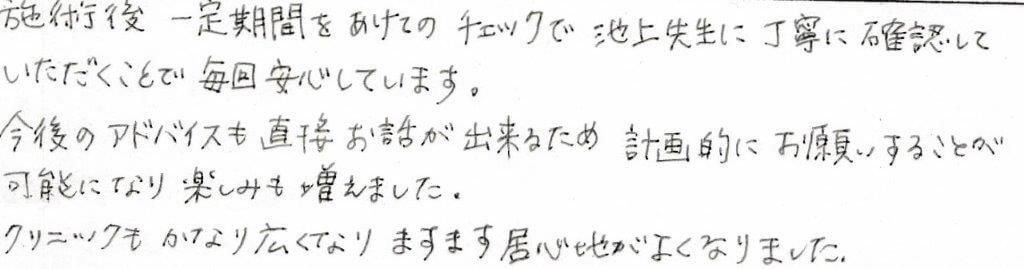 施術後 一定期間をあけてのチェックで 池上先生に丁寧に確認して
いただくことで 毎回安心しています。
今後のアドバイスも直接お話が出来るため 計画的にお願いすることが
可能になり楽しみも増えました。
クリニックもかなり広くなり ますます居心地がよくなりました。